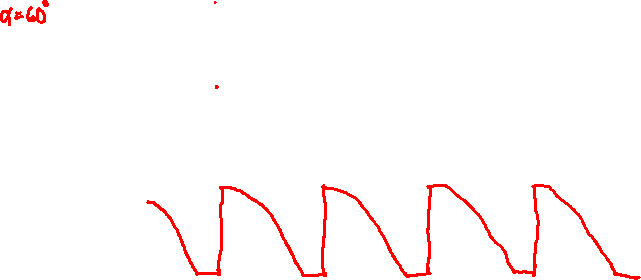 α=60°